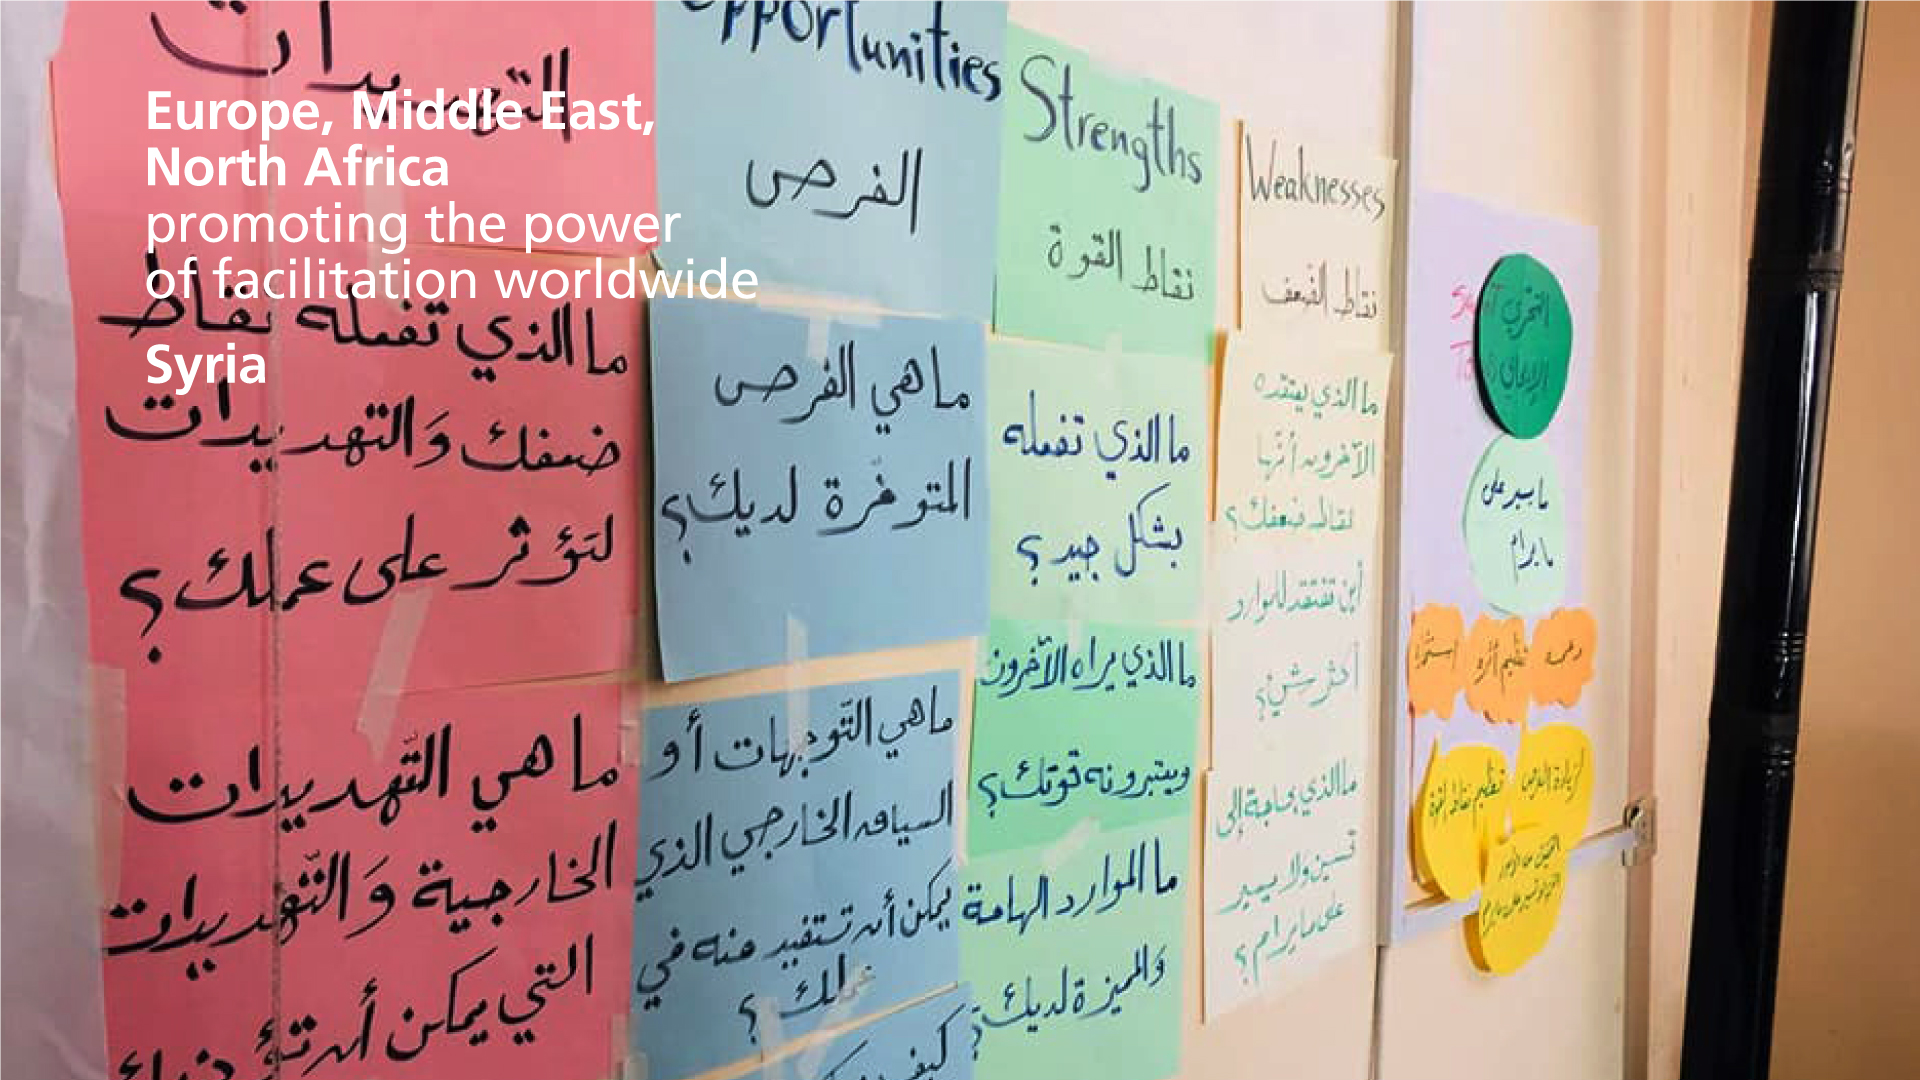 Europe, Middle East,
North Africa
promoting the power
of facilitation worldwide
Syria
التهديدات
ما الذي تفعله نقاط
ضعفك وَالتهديدات
لتؤثر على عملك؟
ما هي التّهديدات
الخارجية وَالتّهديدات
التي يمكن أن
Opportunities
الفرص
ما هي الفرص
المتوفّرة لديك؟
ما هي التّوجهات أو
السياق الخارجي الذي
يمكن أن تستفيد منه في
كيف
Strengths
نقاط القوة
ما الذي تفعله
بشكل جيد؟
ما الذي يراه الآخرون
ويعتبرونه قوتك؟
ما الموارد الهامة
وَالمميزة لديك؟
Weaknesses
نقاط الضعف
ما الذي يعتقده
الآخرون أنّها
نقاط ضعفك؟
أين تفتقد للموارد
أكثر شيء؟
ما الذي بحاجة إلى
تحسين ولا يسير
على ما يرام؟
التحري
ما يسير على
ما يرام